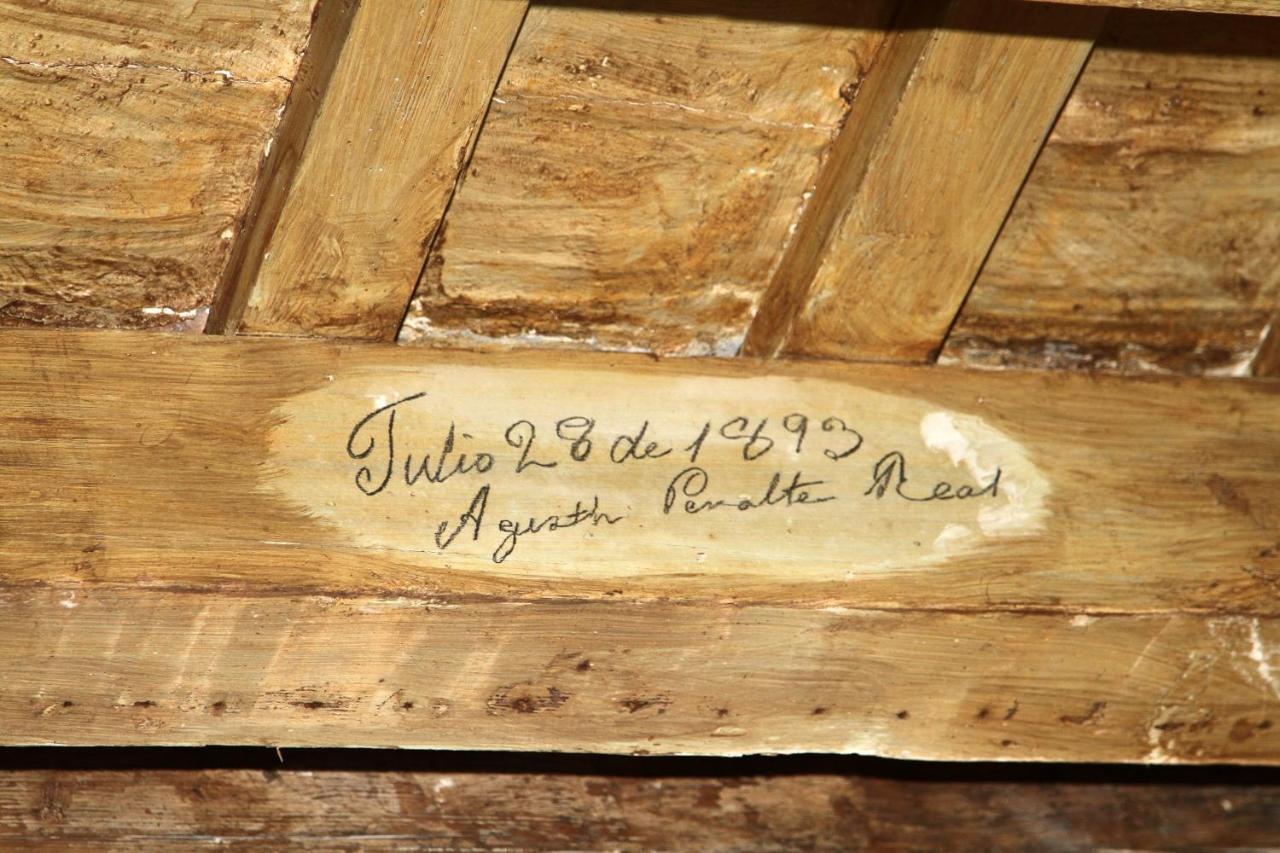 Julio 28 de 1893
Agustín Penalte Real